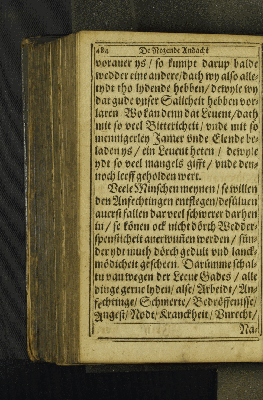 484 De Negende Andacht
vorauer ys / so kumpt darup balde
wedder eine andere / dath wy also alle-
tydt tho lydende hebben / dewyle wy
dat gude vnser Salicheit hebben vor-
laren. Wo kan denn dat Leuent / dath
mit so veel Bittericheit / vnde mit so
mennigerley Jamer vnde Elende be-
laden ys / ein Leuent heten / dewyle
ydt so veel mangels gifft / vnde den-
noch leeff geholden wert.
Veele Minschen meynen / se willen
den Anfechtingen entflegen / desüluen
auerst fallen dar veel schwerer darhen
in / se könen ock nicht dörch Wedder-
spenslicheit auerwunnen werden / sün-
der ydt muth dörch gedult vnd lanck-
mödicheit gescheen. Darümme schal-
tu van wegen der Leeue Gades / alle
dinge gerne lyden / alse / Arbeidt / An-
fechtinge / Schmerte / Bedröffenisse /
Angest / Nodt / Kranckheit / Vnrecht /
Na-